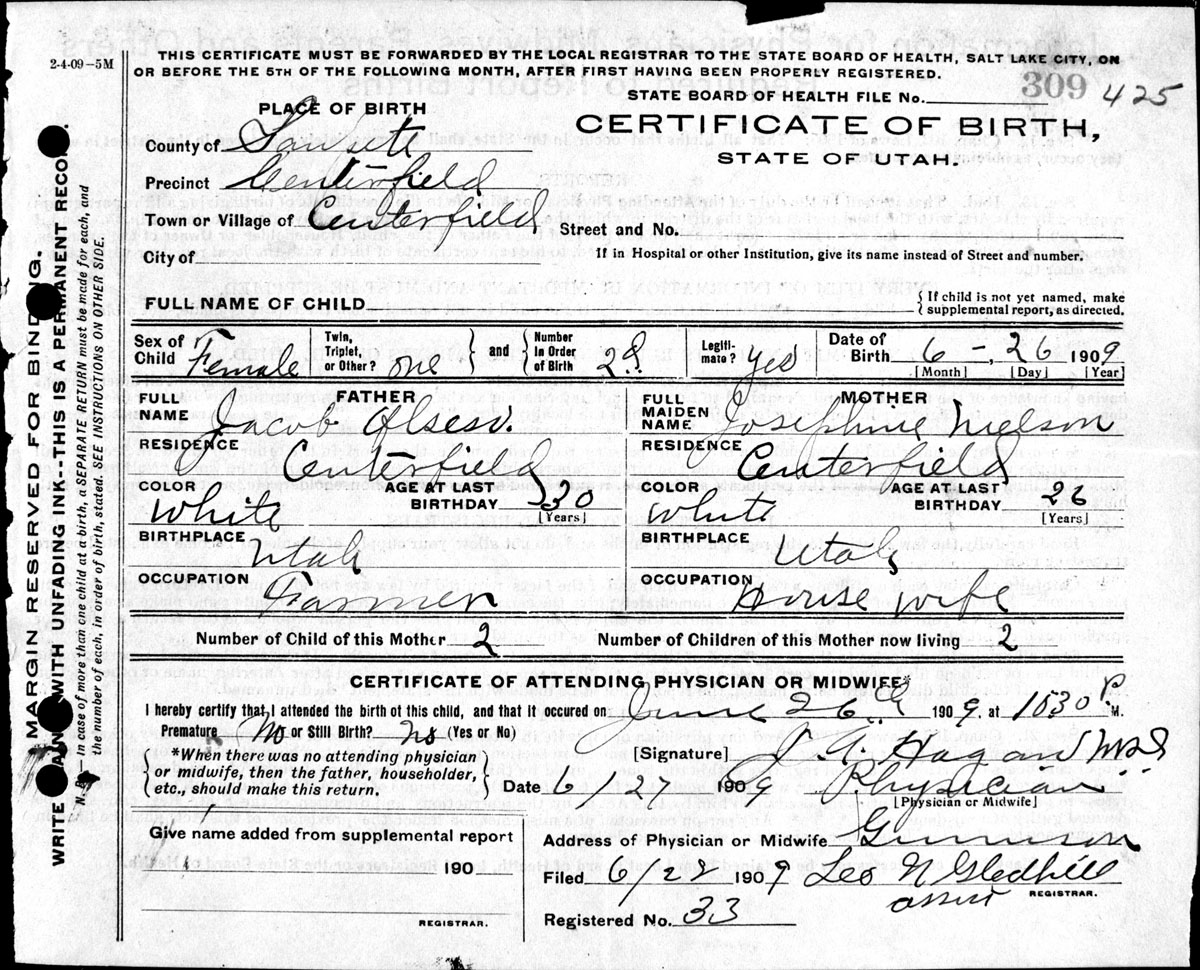 2-4-09-5M
THIS CERTIFICATE MUST BE FORWARDED BY THE LOCAL REGISTRAR TO THE STATE BOARD OF HEALTH, SALT LAKE CITY, ON
OR BEFORE THE 5TH OF THE FOLLOWING MONTH, AFTER FIRST HAVING BEEN PROPERLY REGISTERED.
STATE BOARD OF HEALTH FILE No. 309 425
PLACE OF BIRTH
CERTIFICATE OF BIRTH,
STATE OF UTAH.
County of Sanpete
Precinct Centerfield
Town or Village of Centerfield Street and No.
City of If in Hospital or other Institution, give its name instead of Street and number.
FULL NAME OF CHILD { If child is not yet named, make supplemental report, as directed.
Sex of Child Female Twin, Triplet, or Other? one } and { Number in Order of Birth 2d Legitimate? yes Date of Birth 6 - 26 1909
[Month] [Day] [Year]
FULL NAME FATHER Jacob
FULL MAIDEN NAME MOTHER Josephine Nielson
RESIDENCE Centerfield RESIDENCE Centerfield
COLOR White AGE AT LAST BIRTHDAY 30 [Years] COLOR White AGE AT LAST BIRTHDAY 26 [Years]
BIRTHPLACE Utah BIRTHPLACE Utah
OCCUPATION Farmer OCCUPATION House wife
Number of Child of this Mother 2 Number of Children of this Mother now living 2
CERTIFICATE OF ATTENDING PHYSICIAN OR MIDWIFE*
I hereby certify that I attended the birth of this child, and that it occured on June 26th 1909, at 1030 P. M.
Premature No or Still Birth? No (Yes or No)
[Signature] Hagan MD
*When there was no attending physician
or midwife, then the father, householder,
etc., should make this return.
Date 6/27 1909 Physician
[Physician or Midwife]
Give name added from supplemental report
190
REGISTRAR.
Address of Physician or Midwife Gunnison
Filed 6/28 1909 Leo N Gledhill
asst REGISTRAR.
Registered No. 33
MARGIN RESERVED FOR BINDING.
WRITE AND WITH UNFADING INK--THIS IS A PERMANENT RECO
N.B.—In case of more than one child at a birth, a SEPARATE RETURN must be made for each, and
the number of each, in order of birth, stated. SEE INSTRUCTIONS ON OTHER SIDE.